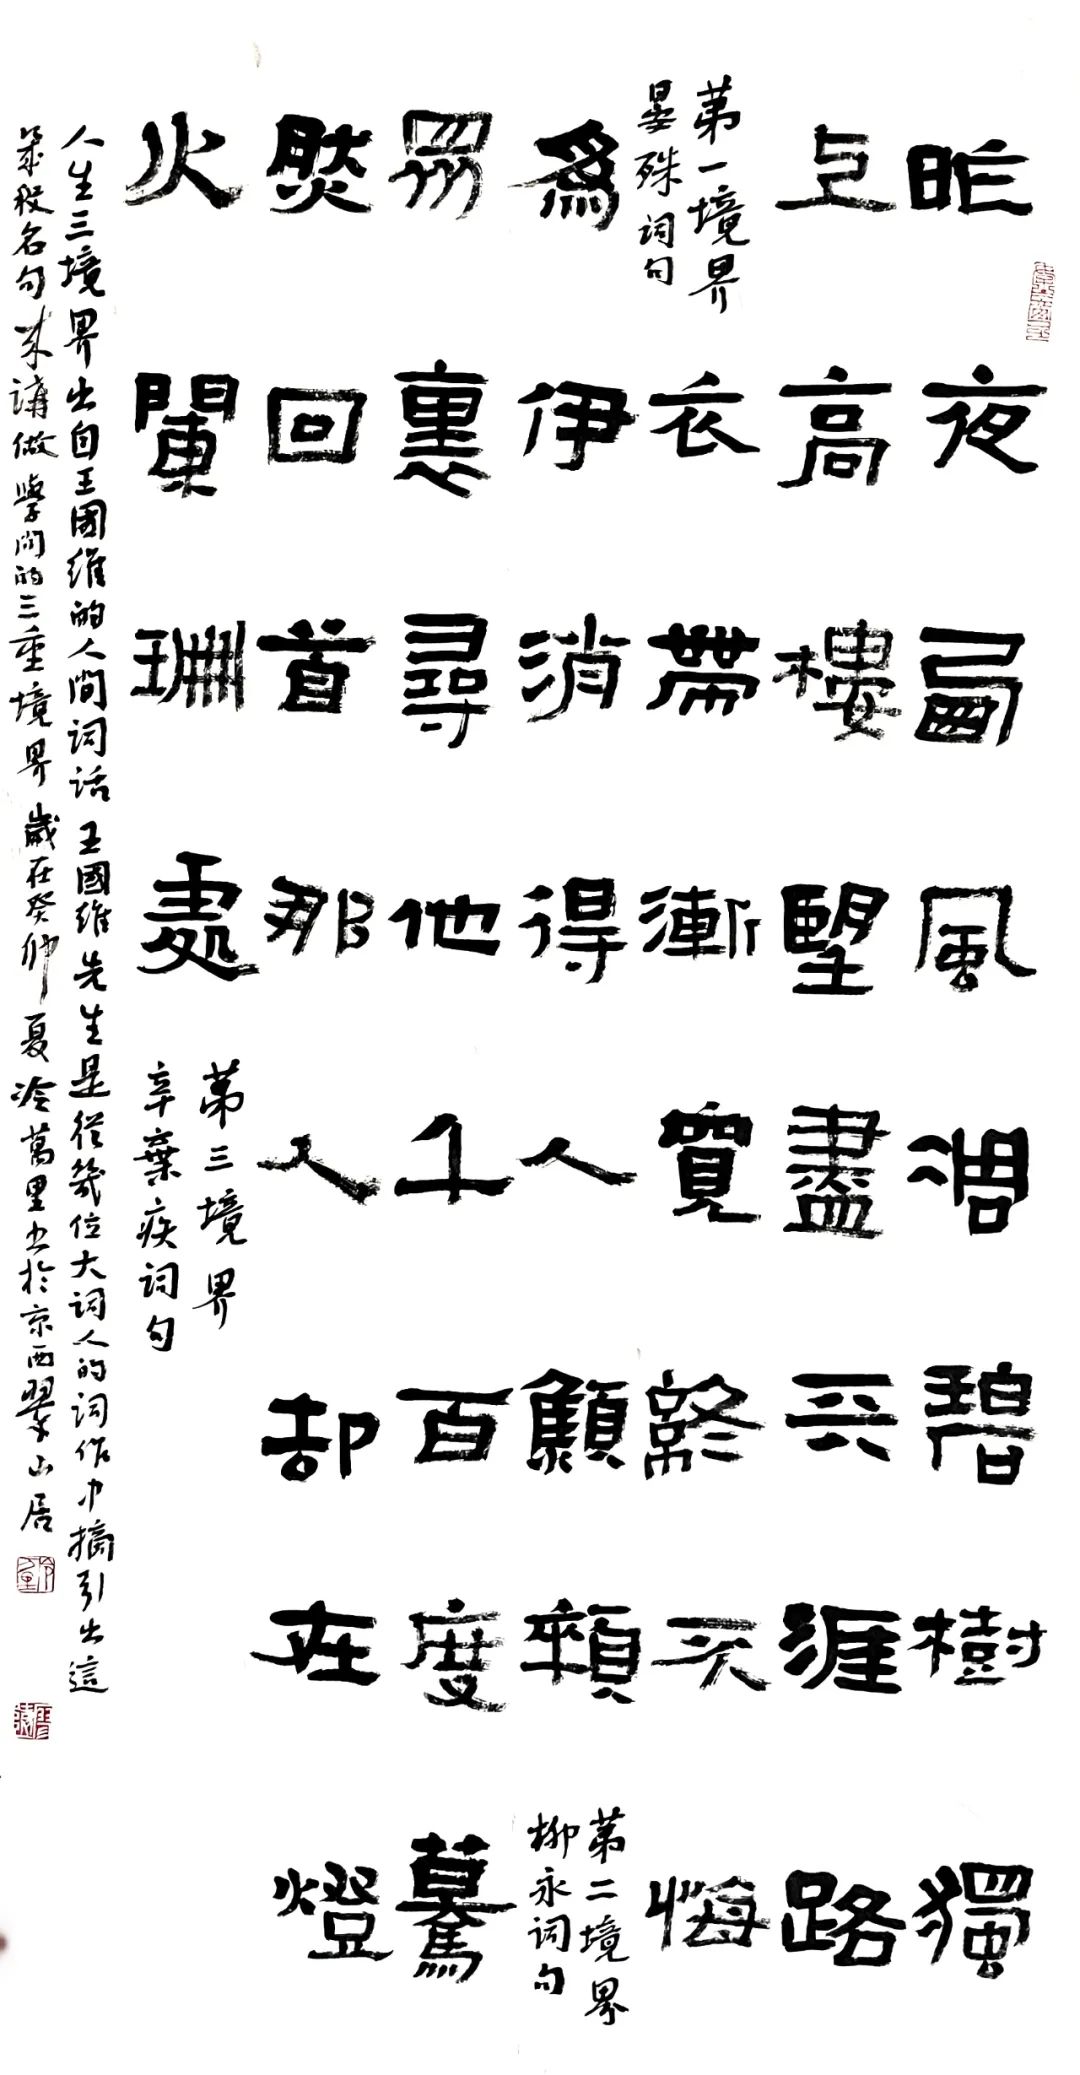 昨夜西風凋碧樹獨
上高樓望盡天涯路
第一境界
晏殊詞句
衣帶漸寬終不悔
爲伊消得人顦顇
第二境界
柳永詞句
眾裏尋他千百度驀
然回首那人却在燈
火闌珊處
第三境界
辛棄疾詞句
人生三境界出自王國維的人間詞話王國維先生是從幾位大詞人的詞作中摘引出這
幾段名句来講做學問的三重境界歲在癸卯夏冷萬里书於京西翠山居